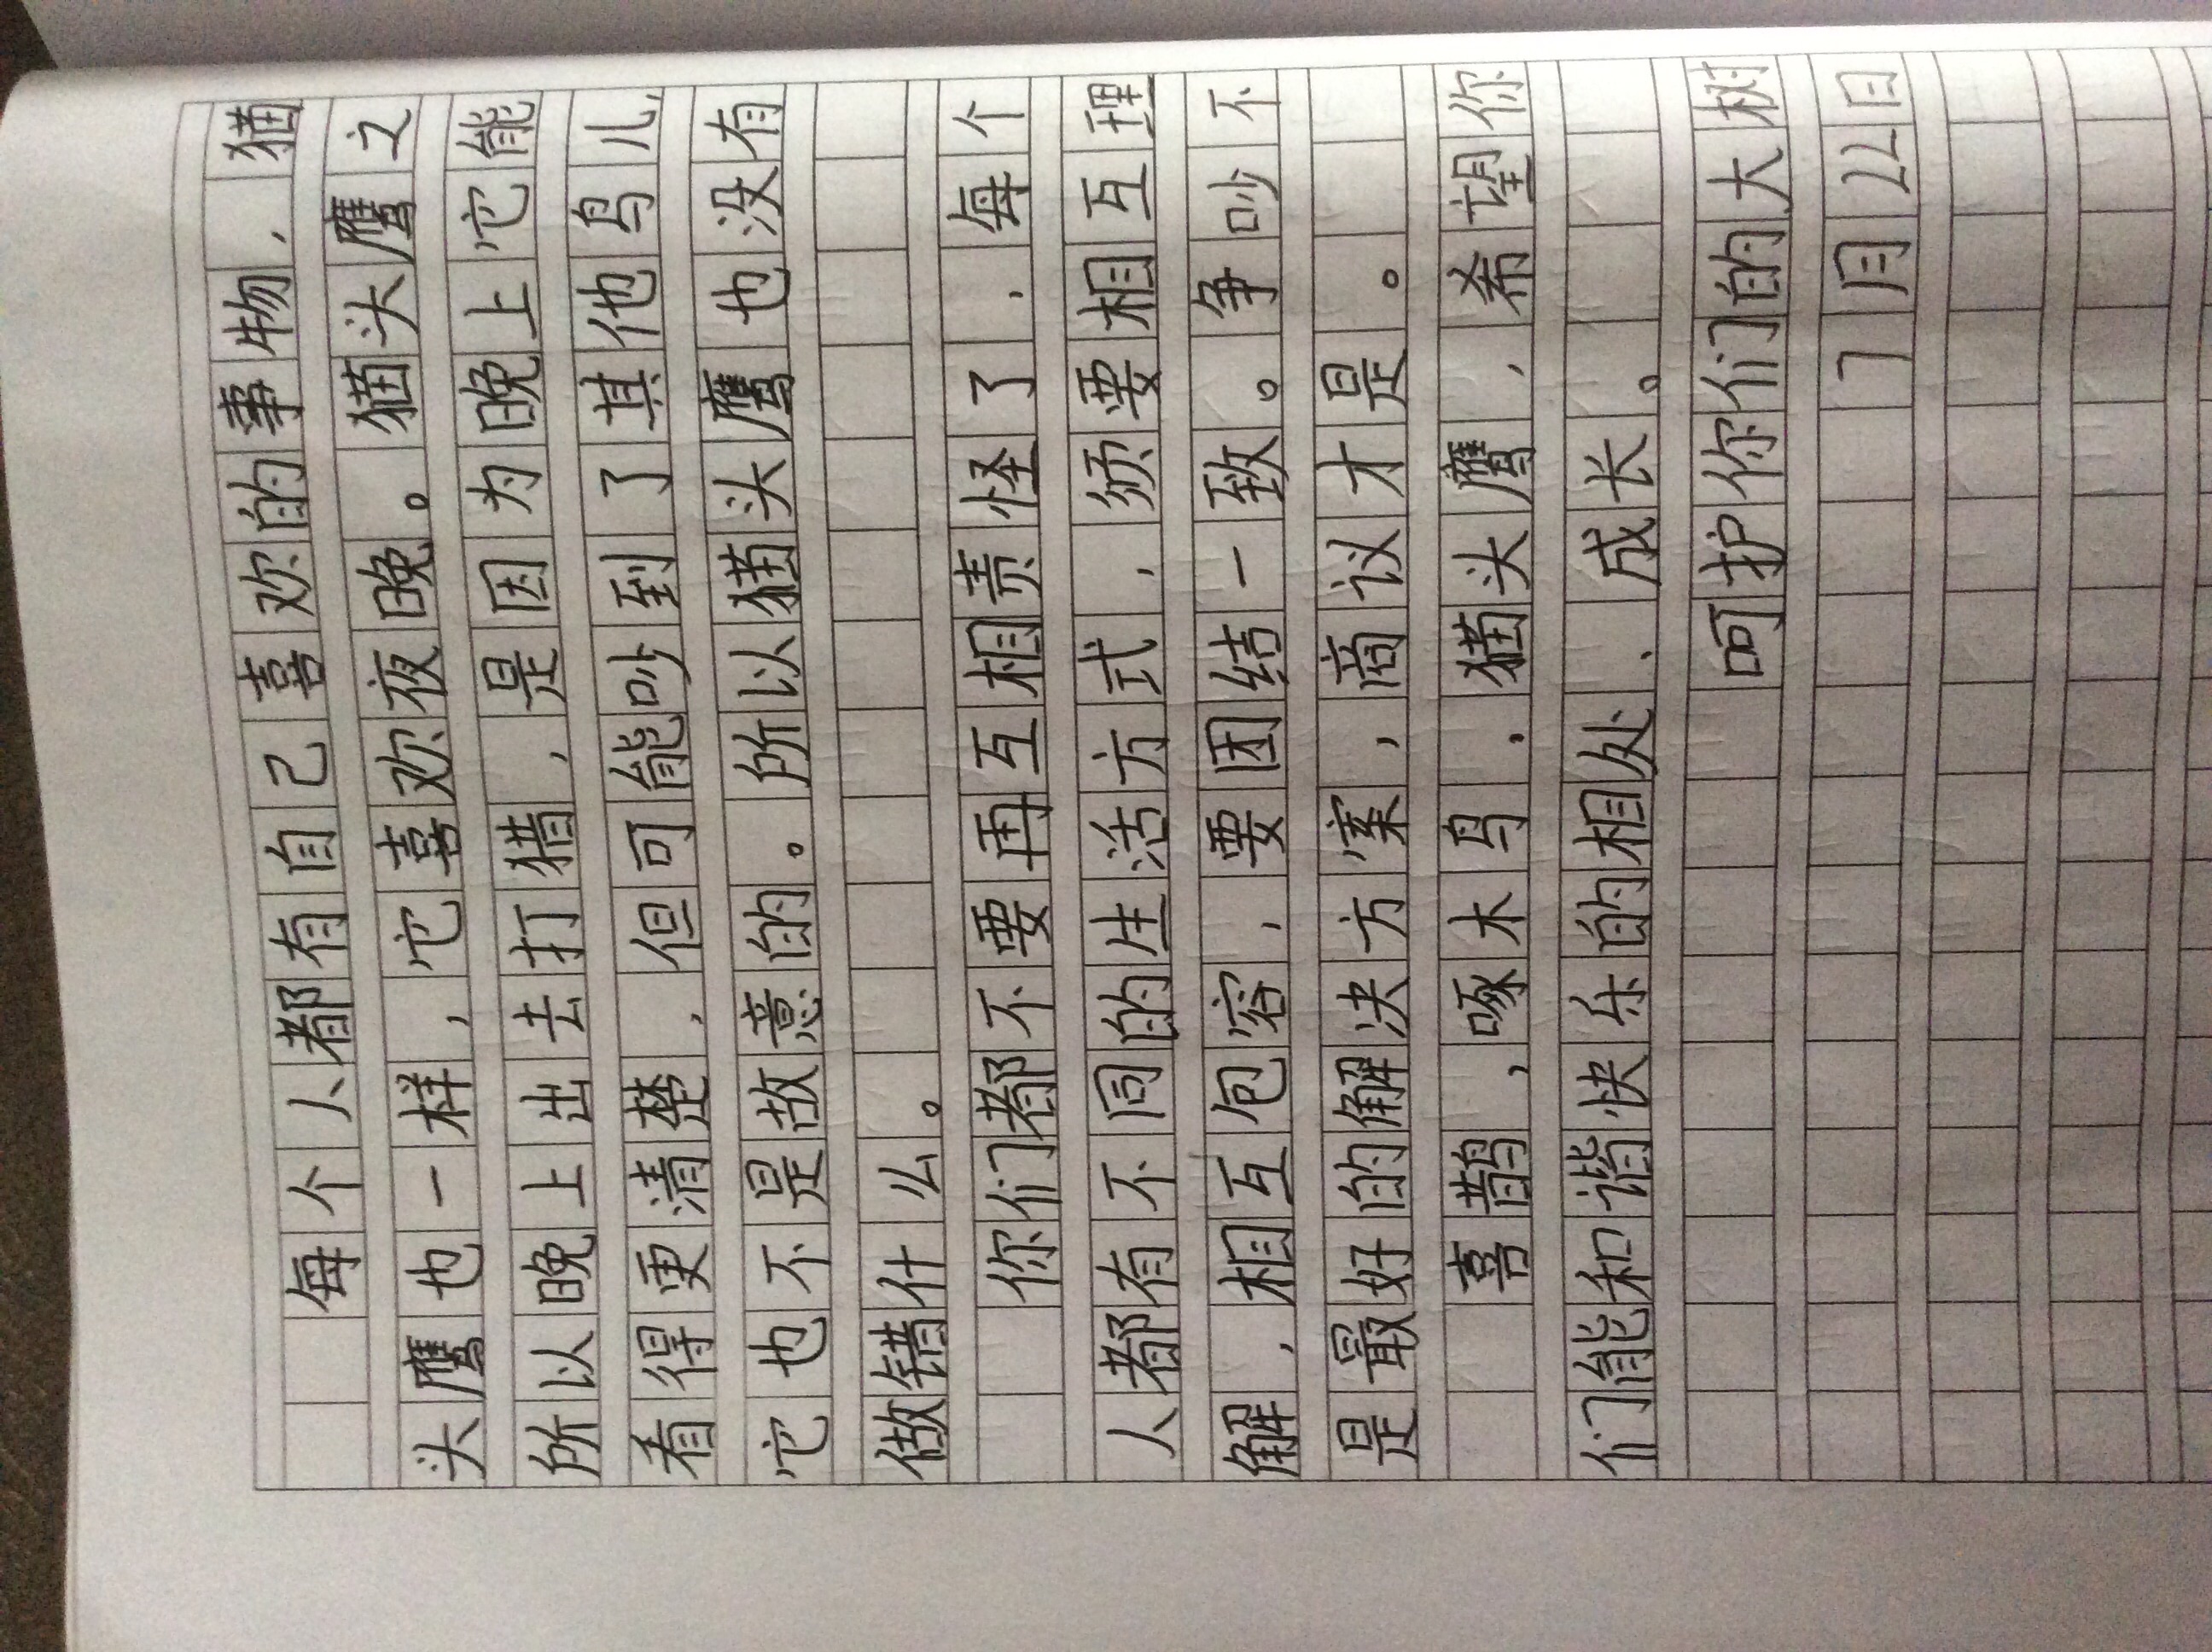 每个人都有自己喜欢的事物，猫
头鹰也一样，它喜欢夜晚。猫头鹰之
所以晚上出去打猎，是因为晚上它能
看得更清楚，但可能吵到了其他鸟儿，
它也不是故意的。所以猫头鹰也没有
做错什么。
你们都不要再互相责怪了，每个
人都有不同的生活方式，须要相互理
解，相互包容，要团结一致。争吵不
是最好的解决方案，商议才是。
喜鹊，啄木鸟，猫头鹰，希望你
们能和谐快乐的相处、成长。
呵护你们的大树
7月22日